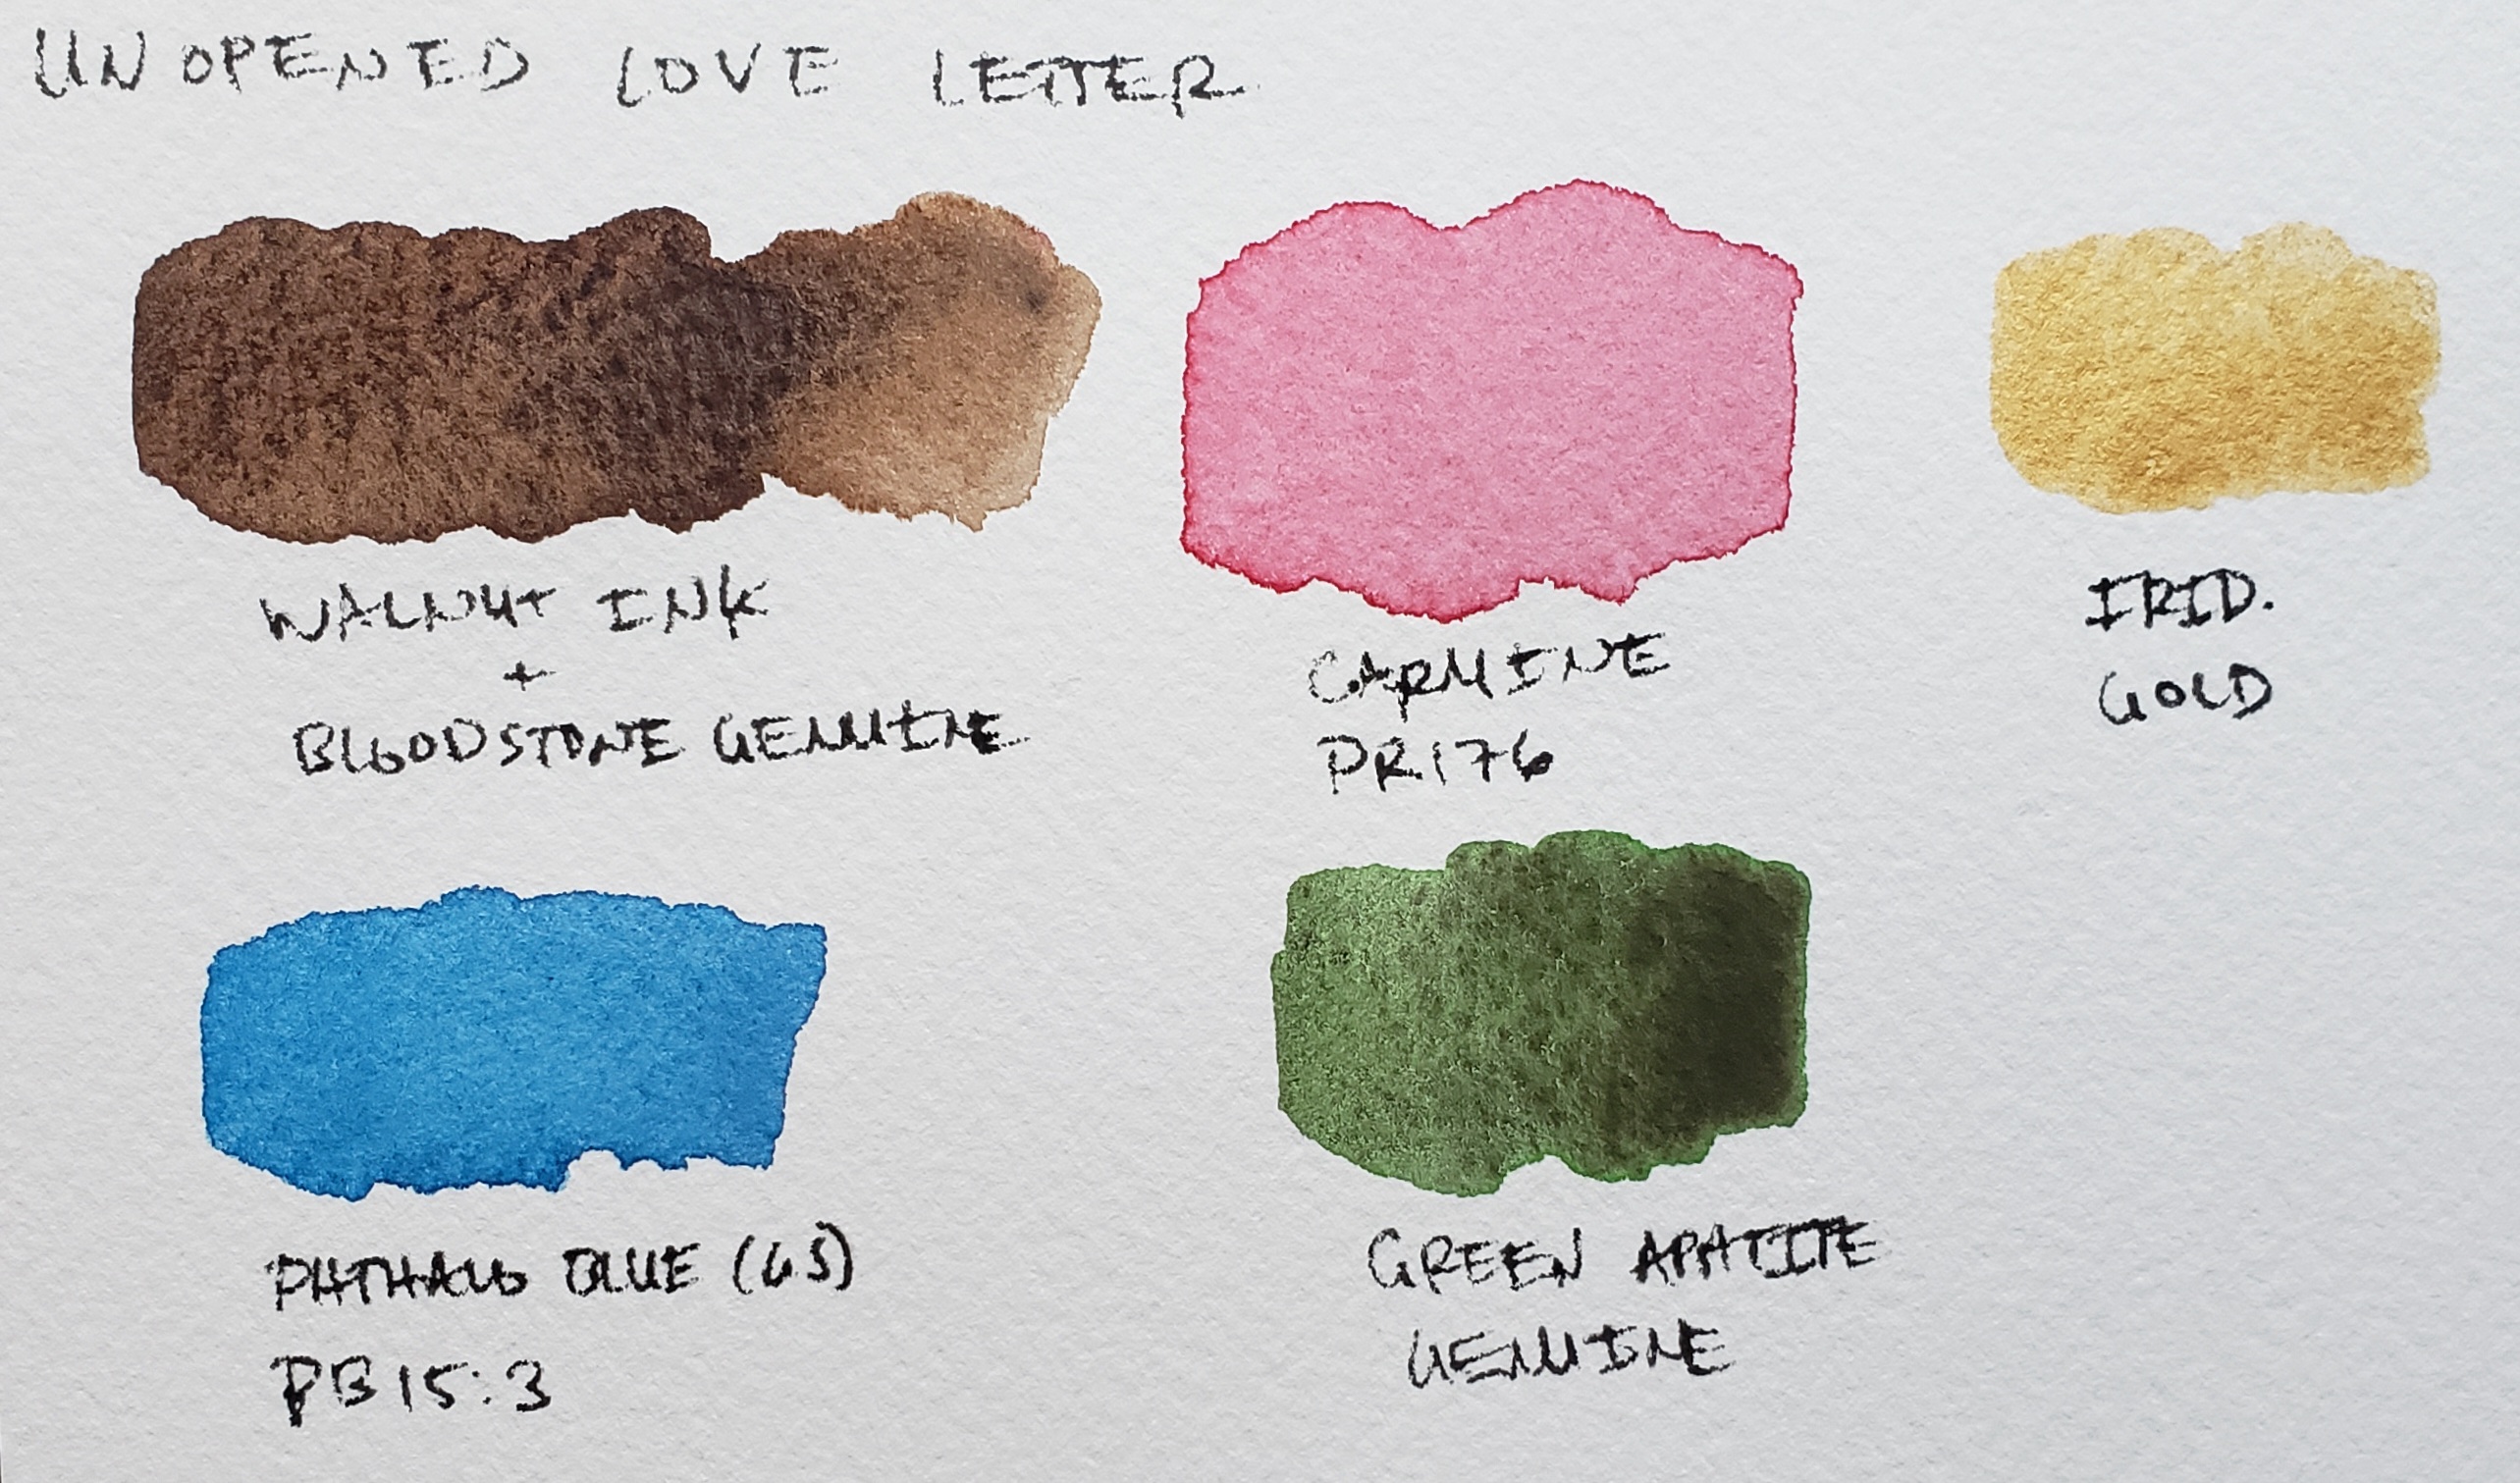 UNOPENED LOVE LETTER
WALNUT INK
+
BLOODSTONE GENUINE
CARMINE
PR176
IRID.
GOLD
PHTHALO BLUE (GS)
PB15:3
GREEN APATITE
GENUINE